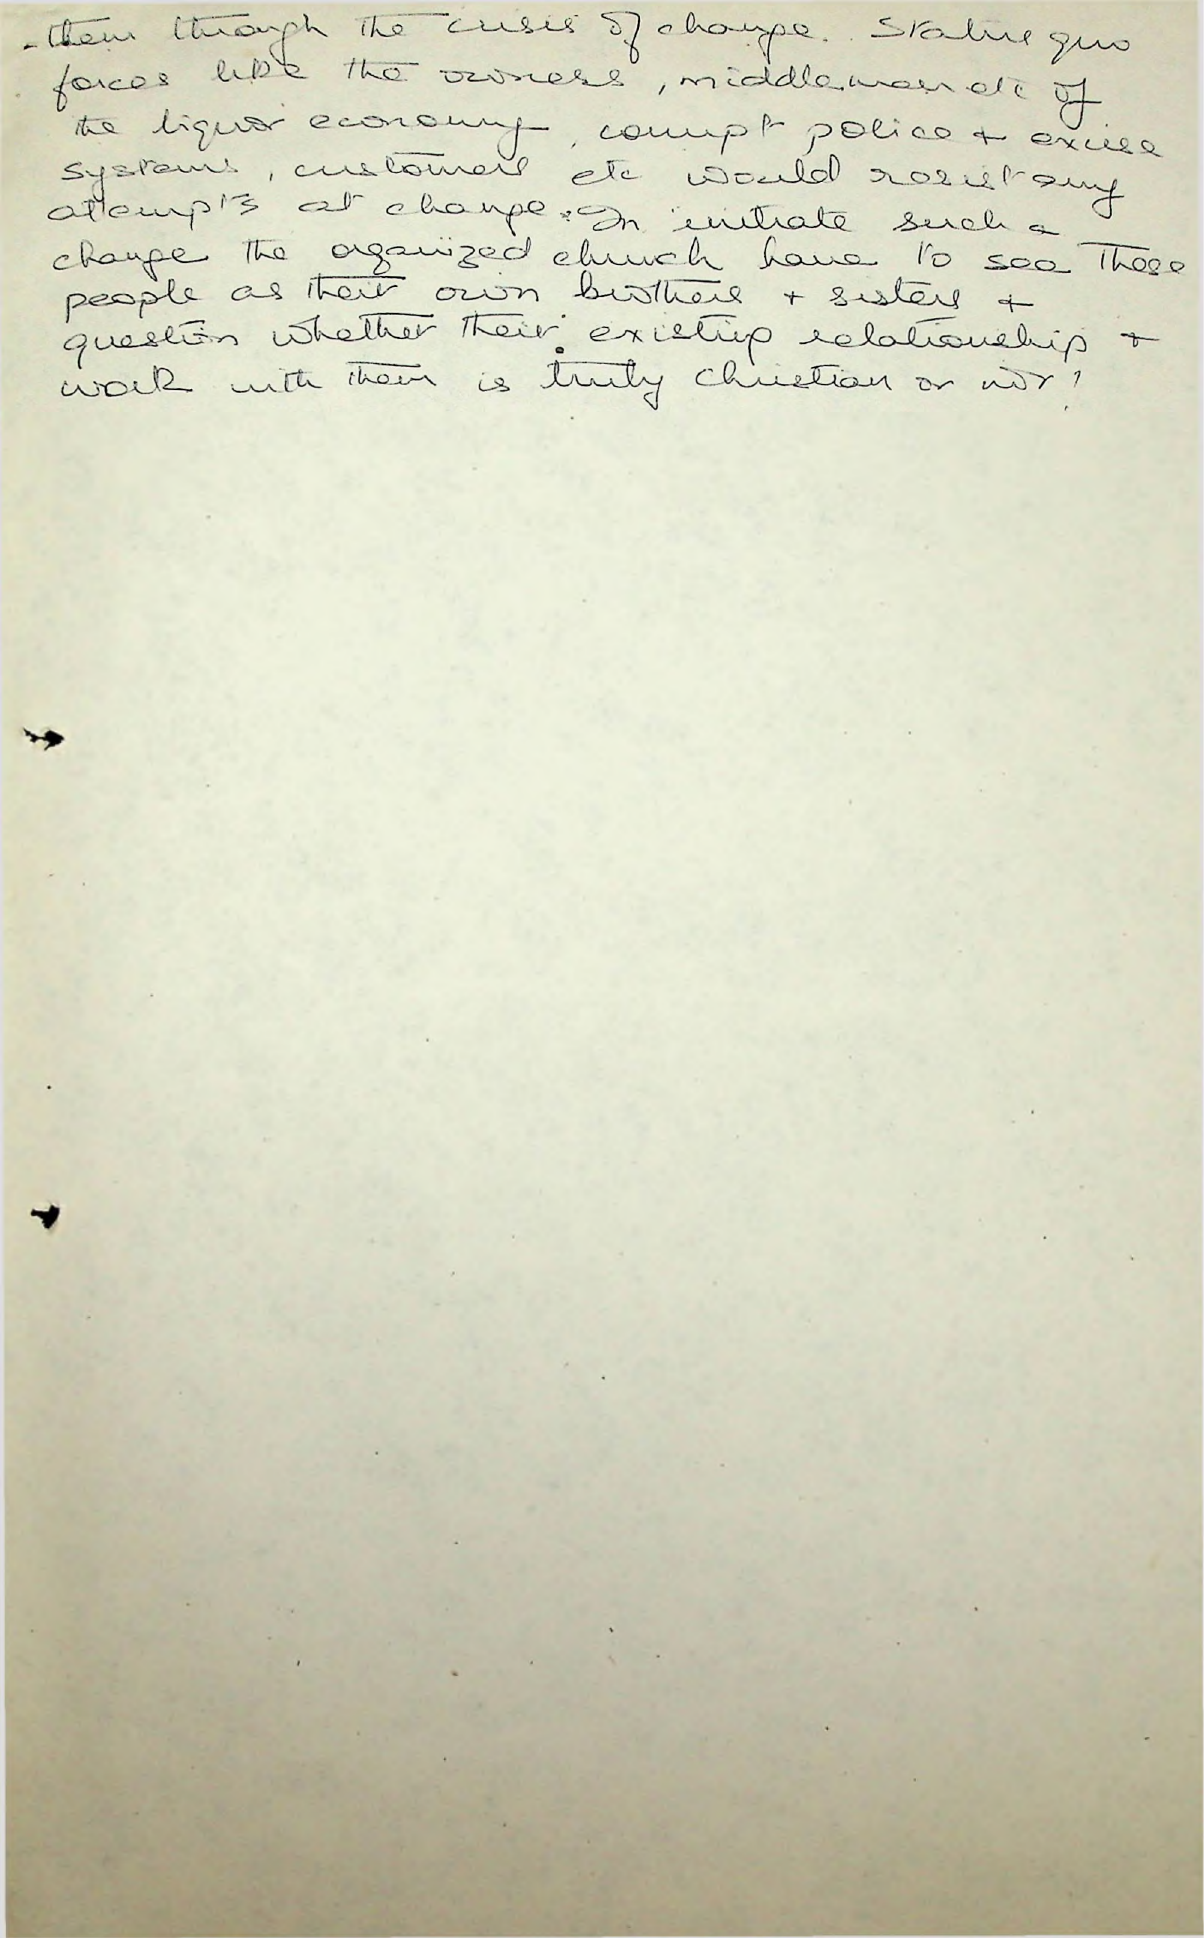 them through the crisis of change. Statue quo
forces like the owners, middleman etc of
the liquor economy, corrupt police + excise
systems, customers etc would resist any
attempts at change. In initiate such a
change the organized church have to see these
people as their own brothers + sisters +
question whether their existing relationship +
work with them is truly Christian or not?